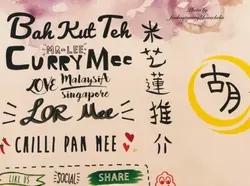 Bak Kut Teh
MR·LEE
CURRY Mee
LOVE Malaysia
Singapore
LOR Mee
CHILLI PAN MEE
米芝蓮推介
胡
LIKE US
SOCIAL
SHARE
Photo by